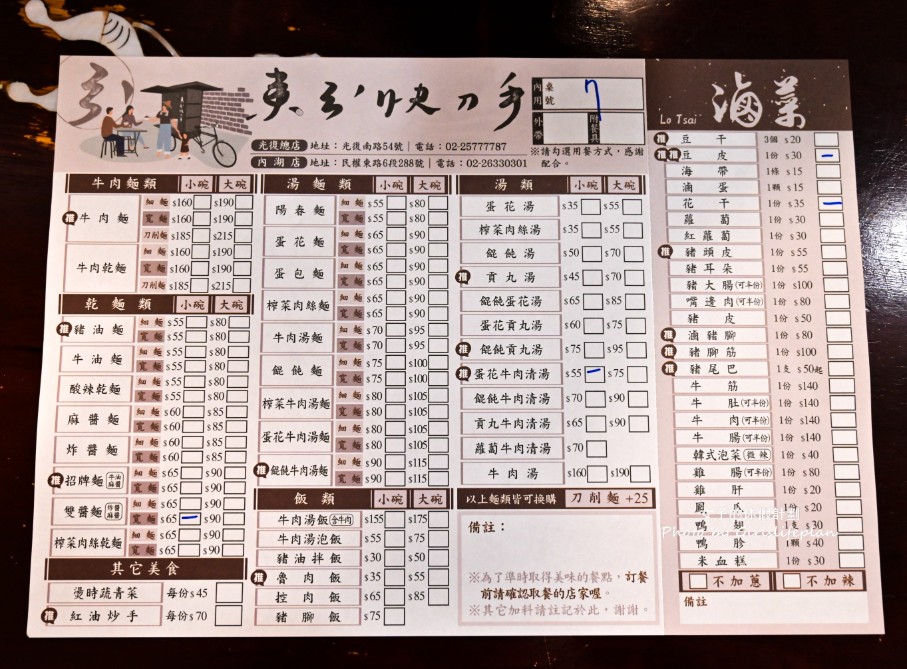 東引快刀手
光復總店 地址：光復南路54號｜電話：02-25777787
內湖店 地址：民權東路6段288號｜電話：02-26330301
內用 桌號 7
外帶 附餐具
※請勾選用餐方式，感謝配合。
牛肉麵類 小碗 大碗
推 牛肉麵 細麵 $160 $190
寬麵 $160 $190
刀削麵 $185 $215
牛肉乾麵 細麵 $160 $190
寬麵 $160 $190
刀削麵 $185 $215
乾麵類 小碗 大碗
推 豬油麵 細麵 $55 $80
寬麵 $55 $80
牛油麵 細麵 $55 $80
寬麵 $55 $80
酸辣乾麵 細麵 $55 $80
寬麵 $55 $80
麻醬麵 細麵 $60 $85
寬麵 $60 $85
炸醬麵 細麵 $60 $85
寬麵 $60 $85
推 招牌麵 牛油 麻醬 細麵 $65 $90
寬麵 $65 $90
雙醬麵 炸醬 麻醬 細麵 $65 $90
寬麵 $65 $90
榨菜肉絲乾麵 細麵 $65 $90
寬麵 $65 $90
其它美食
燙時蔬青菜 每份$45
推 紅油炒手 每份$70
湯麵類 小碗 大碗
陽春麵 細麵 $55 $80
寬麵 $55 $80
蛋花麵 細麵 $65 $90
寬麵 $65 $90
蛋包麵 細麵 $65 $90
寬麵 $65 $90
榨菜肉絲麵 細麵 $65 $90
寬麵 $65 $90
牛肉湯麵 細麵 $70 $95
寬麵 $70 $95
餛飩麵 細麵 $75 $100
寬麵 $75 $100
榨菜牛肉湯麵 細麵 $80 $105
寬麵 $80 $105
蛋花牛肉湯麵 細麵 $80 $105
寬麵 $80 $105
推 餛飩牛肉湯麵 細麵 $90 $115
寬麵 $90 $115
飯類 小碗 大碗
牛肉湯飯 含牛肉 $155 $175
牛肉湯泡飯 $55 $75
豬油拌飯 $30 $50
推 魯肉飯 $35 $55
控肉飯 $65 $85
豬腳飯 $75
湯類 小碗 大碗
蛋花湯 $35 $55
榨菜肉絲湯 $35 $55
餛飩湯 $50 $70
推 貢丸湯 $45 $70
餛飩蛋花湯 $65 $85
蛋花貢丸湯 $60 $75
推 餛飩貢丸湯 $75 $95
推 蛋花牛肉清湯 $55 $75
餛飩牛肉清湯 $70 $90
貢丸牛肉清湯 $65 $90
蘿蔔牛肉清湯 $70
牛肉湯 $160 $190
以上麵類皆可換購 刀削麵 +25
備註：
※為了準時取得美味的餐點，訂餐
前請確認取餐的店家喔。
※其它加料請註記於此，謝謝。
Lo Tsai 滷菜
推 豆干 3個 $20
推 推 豆皮 1份 $30
海帶 1條 $15
滷蛋 1顆 $15
推 花干 1份 $35
蘿蔔 1份 $30
紅蘿蔔 1份 $30
推 豬頭皮 1份 $55
豬耳朵 1份 $55
豬大腸(可半份) 1份 $100
嘴邊肉(可半份) 1份 $80
豬皮 1份 $50
推 滷豬腳 1份 $80
推 豬腳筋 1份 $100
推 豬尾巴 1支 $50起
牛筋 1份 $140
牛肚(可半份) 1份 $140
牛肉(可半份) 1份 $140
牛腸(可半份) 1份 $140
韓式泡菜 微辣 1份 $40
雞腸(可半份) 1份 $80
雞肝 1份 $20
鳳爪 1份 $20
鴨翅 1支 $30
鴨胗 1顆 $40
米血糕 1份 $30
不加蔥 不加辣
備註